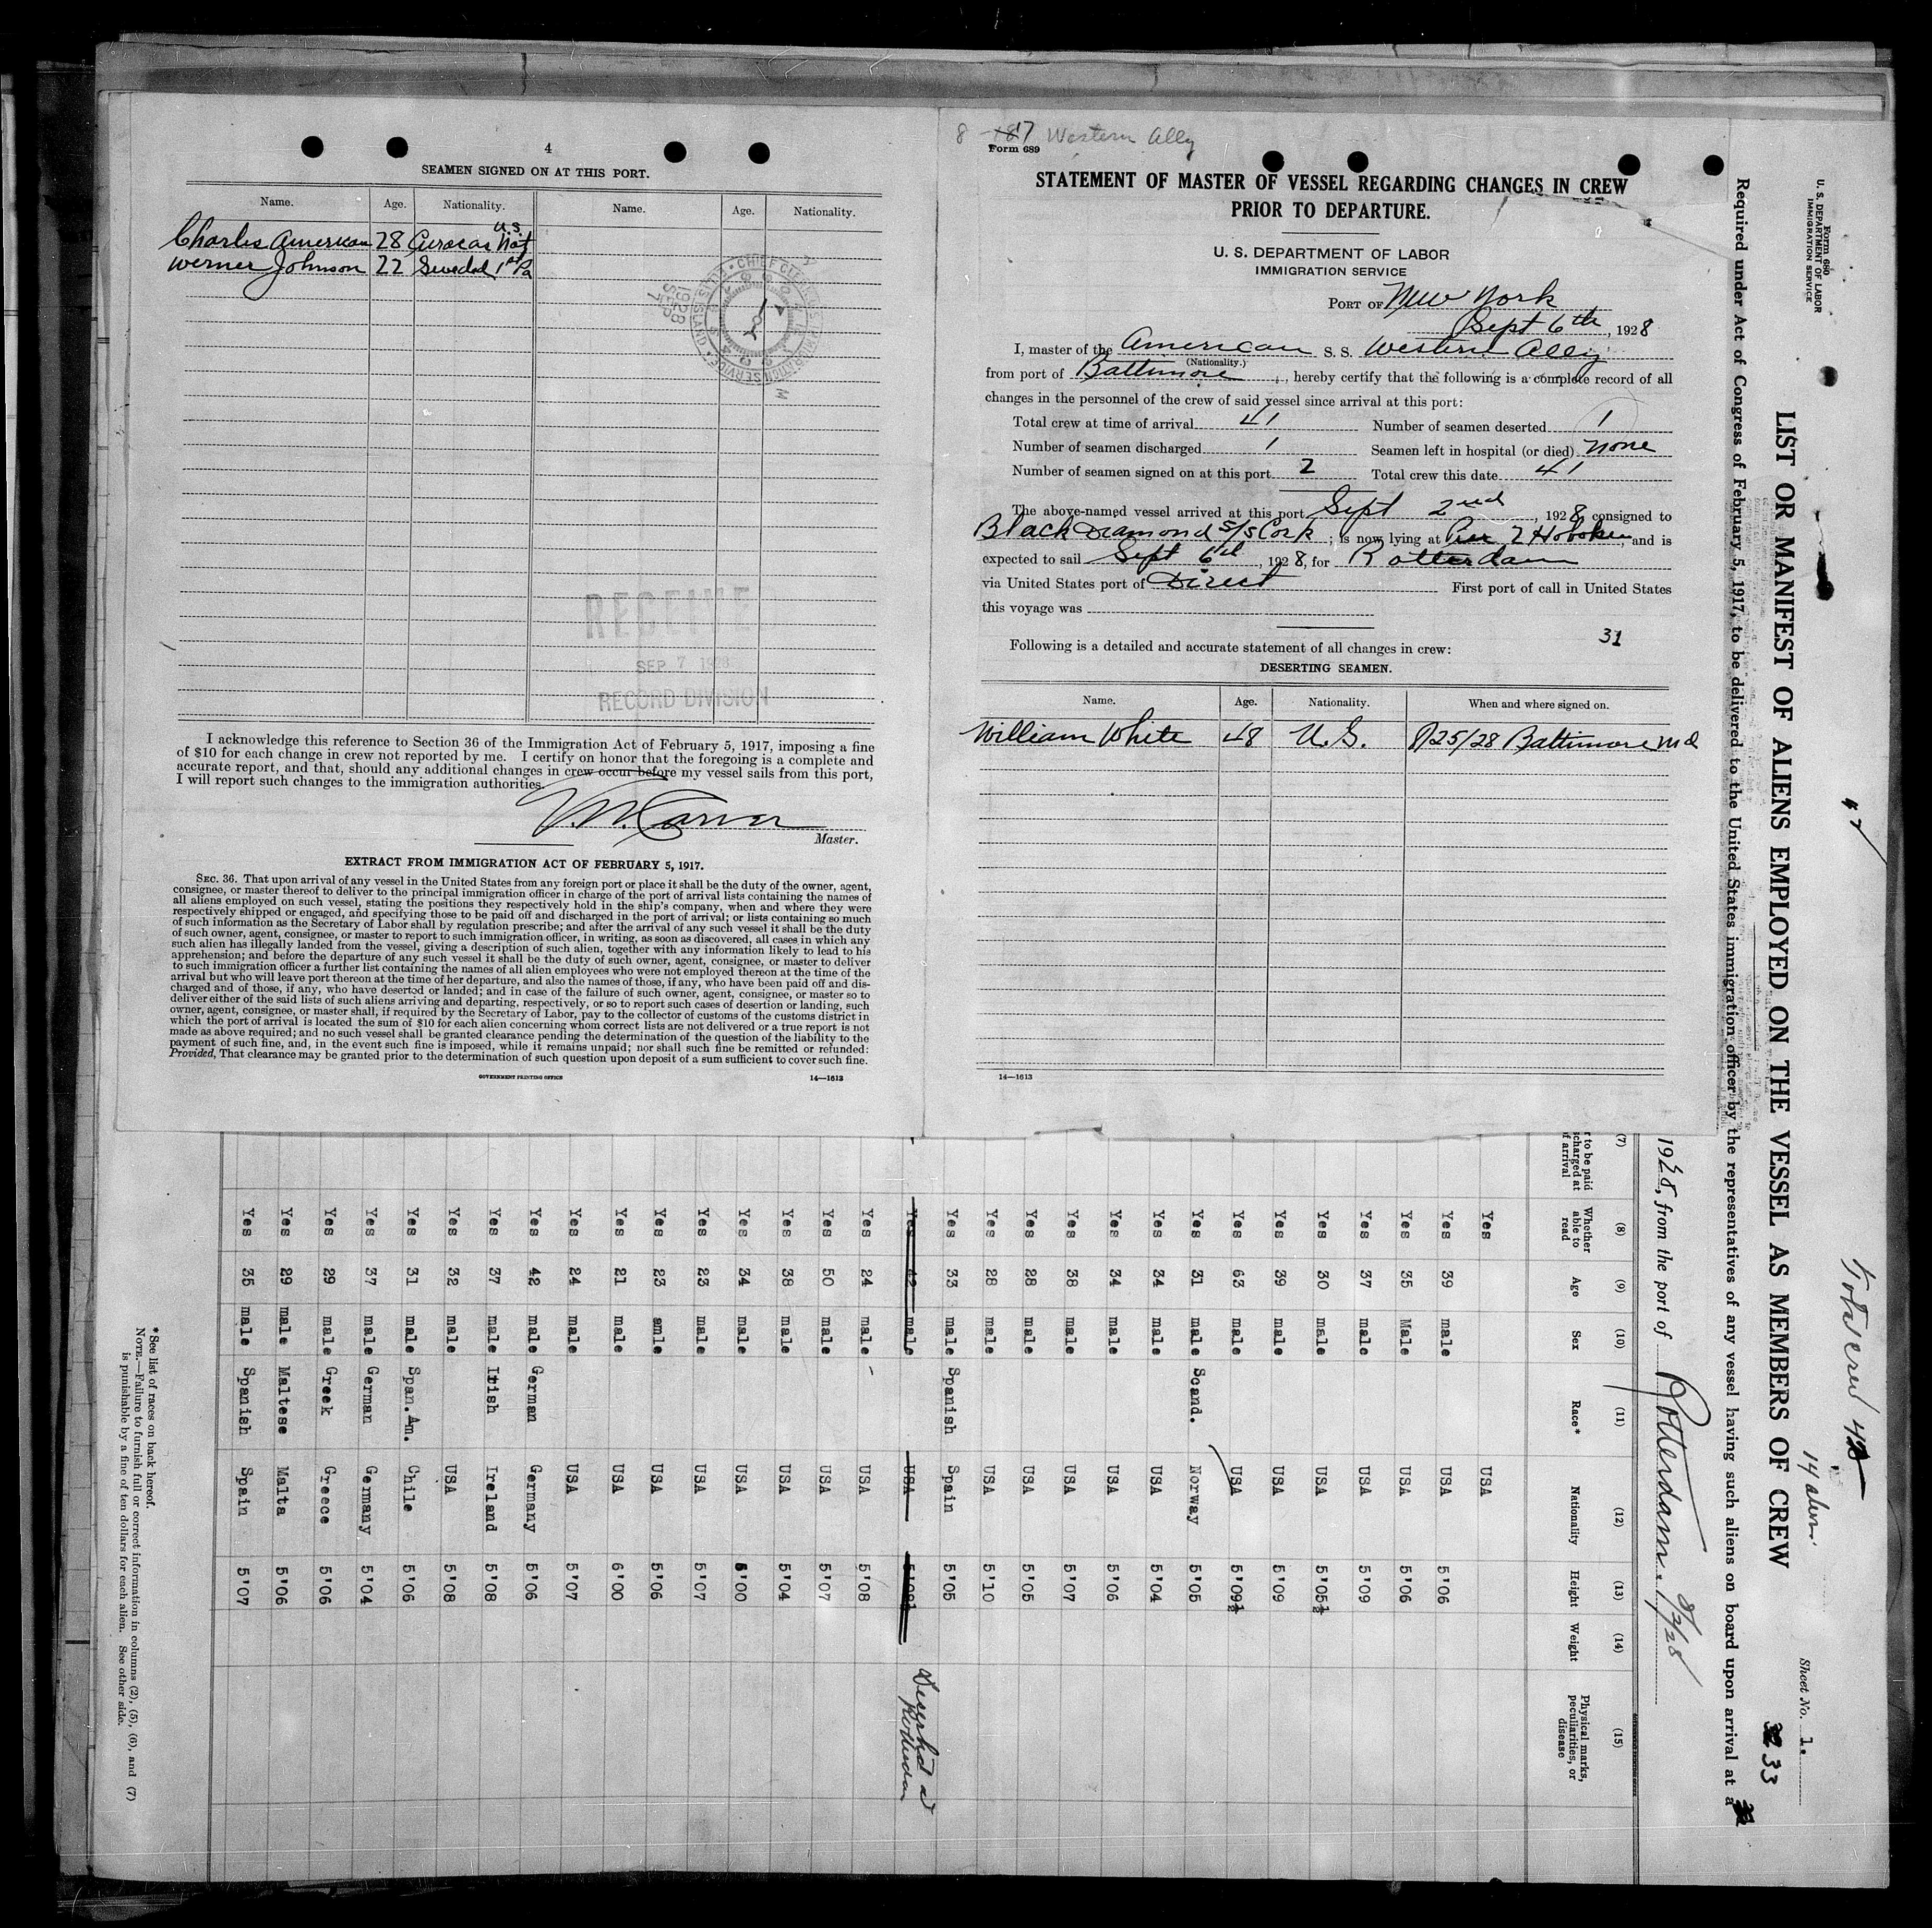 4
SEAMEN SIGNED ON AT THIS PORT.
Name. Age. Nationality. Name. Age. Nationality.
Charles American 28 Curacas U.S. Nat
Werner Johnson 22 Sweded 1st Pa
RECEIVE
SEP 7 1928
RECORD DIVISION
I acknowledge this reference to Section 36 of the Immigration Act of February 5, 1917, imposing a fine
of $10 for each change in crew not reported by me. I certify on honor that the foregoing is a complete and
accurate report, and that, should any additional changes in crew occur before my vessel sails from this port,
I will report such changes to the immigration authorities.
Master.
EXTRACT FROM IMMIGRATION ACT OF FEBRUARY 5, 1917.
SEC. 36. That upon arrival of any vessel in the United States from any foreign port or place it shall be the duty of the owner, agent,
consignee, or master thereof to deliver to the principal immigration officer in charge of the port of arrival lists containing the names of
all aliens employed on such vessel, stating the positions they respectively hold in the ship's company, when and where they were
respectively shipped or engaged, and specifying those to be paid off and discharged in the port of arrival; or lists containing so much
of such information as the Secretary of Labor shall by regulation prescribe; and after the arrival of any such vessel it shall be the duty
of such owner, agent, consignee, or master to report to such immigration officer, in writing, as soon as discovered, all cases in which any
such alien has illegally landed from the vessel, giving a description of such alien, together with any information likely to lead to his
apprehension; and before the departure of any such vessel it shall be the duty of such owner, agent, consignee, or master to deliver
to such immigration officer a further list containing the names of all alien employees who were not employed thereon at the time of the
arrival but who will leave port thereon at the time of her departure, and also the names of those, if any, who have been paid off and dis-
charged and of those, if any, who have deserted or landed; and in case of the failure of such owner, agent, consignee, or master so to
deliver either of the said lists of such aliens arriving and departing, respectively, or so to report such cases of desertion or landing, such
owner, agent, consignee, or master shall, if required by the Secretary of Labor, pay to the collector of customs of the customs district in
which the port of arrival is located the sum of $10 for each alien concerning whom correct lists are not delivered or a true report is not
made as above required; and no such vessel shall be granted clearance pending the determination of the question of the liability to the
payment of such fine, and, in the event such fine is imposed, while it remains unpaid; nor shall such fine be remitted or refunded:
Provided, That clearance may be granted prior to the determination of such question upon deposit of a sum sufficient to cover such fine.
GOVERNMENT PRINTING OFFICE 14—1613
8 Western Ally
Form 689
STATEMENT OF MASTER OF VESSEL REGARDING CHANGES IN CREW
PRIOR TO DEPARTURE.
U. S. DEPARTMENT OF LABOR
IMMIGRATION SERVICE
PORT OF New York
Sept 6th, 1928
I, master of the American S. S. Western Ally
(Nationality.)
from port of Baltimore, hereby certify that the following is a complete record of all
changes in the personnel of the crew of said vessel since arrival at this port:
Total crew at time of arrival 41 Number of seamen deserted 1
Number of seamen discharged 1 Seamen left in hospital (or died) none
Number of seamen signed on at this port 2 Total crew this date 41
The above-named vessel arrived at this port Sept 2nd, 1928, consigned to
Black Diamond S/S Cork; is now lying at Pier 2 Hoboken, and is
expected to sail Sept 6th, 1928, for Rotterdam
via United States port of Direct First port of call in United States
this voyage was
31
Following is a detailed and accurate statement of all changes in crew:
DESERTING SEAMEN.
Name. Age. Nationality. When and where signed on.
William White 48 U.S. 8/25/28 Baltimore Md
14—1613
Form 680
U. S. DEPARTMENT OF LABOR
IMMIGRATION SERVICE
Sheet No. 1.
Total crew
LIST OR MANIFEST OF ALIENS EMPLOYED ON THE VESSEL AS MEMBERS OF CREW
33
Required under Act of Congress of February 5, 1917, to be delivered to the United States immigration officer by the representatives of any vessel having such aliens on board upon arrival at a
1928, from the port of Rotterdam.
(7) (8) (9) (10) (11) (12) (13) (14) (15)
Whether able to read Age Sex Race* Nationality Height Weight Physical marks, peculiarities, or disease
Yes USA
Yes 39 male USA 5'06
Yes 35 Male USA 5'06
Yes 37 male USA 5'09
Yes 30 male USA 5'05½
Yes 39 male USA 5'09
Yes 63 male USA 5'09½
Yes 31 male Scand. Norway 5'05
Yes 34 male USA 5'04
Yes 34 male USA 5'06
Yes 38 male USA 5'07
Yes 28 male USA 5'05
Yes 28 male USA 5'10
Yes 33 male Spanish Spain 5'05
Yes 42 male USA
Yes 24 male USA 5'08
Yes 50 male USA 5'07
Yes 38 male USA 5'04
Yes 34 male USA 6'00
Yes 23 male USA 5'07
Yes 23 amle USA 5'06
Yes 21 male USA 6'00
Yes 24 male USA 5'07
Yes 42 male German Germany 5'06
Yes 37 male Irish Ireland 5'08
Yes 32 male USA 5'08
Yes 31 male Span.Am. Chile 5'06
Yes 37 male German Germany 5'04
Yes 29 male Greek Greece 5'06
Yes 29 male Maltese Malta 5'06
Yes 35 male Spanish Spain 5'07
* See list of races on back hereof.
NOTE.—Failure to furnish full or correct information in columns (2), (5), (6), and (7)
is punishable by a fine of ten dollars for each alien. See other side.